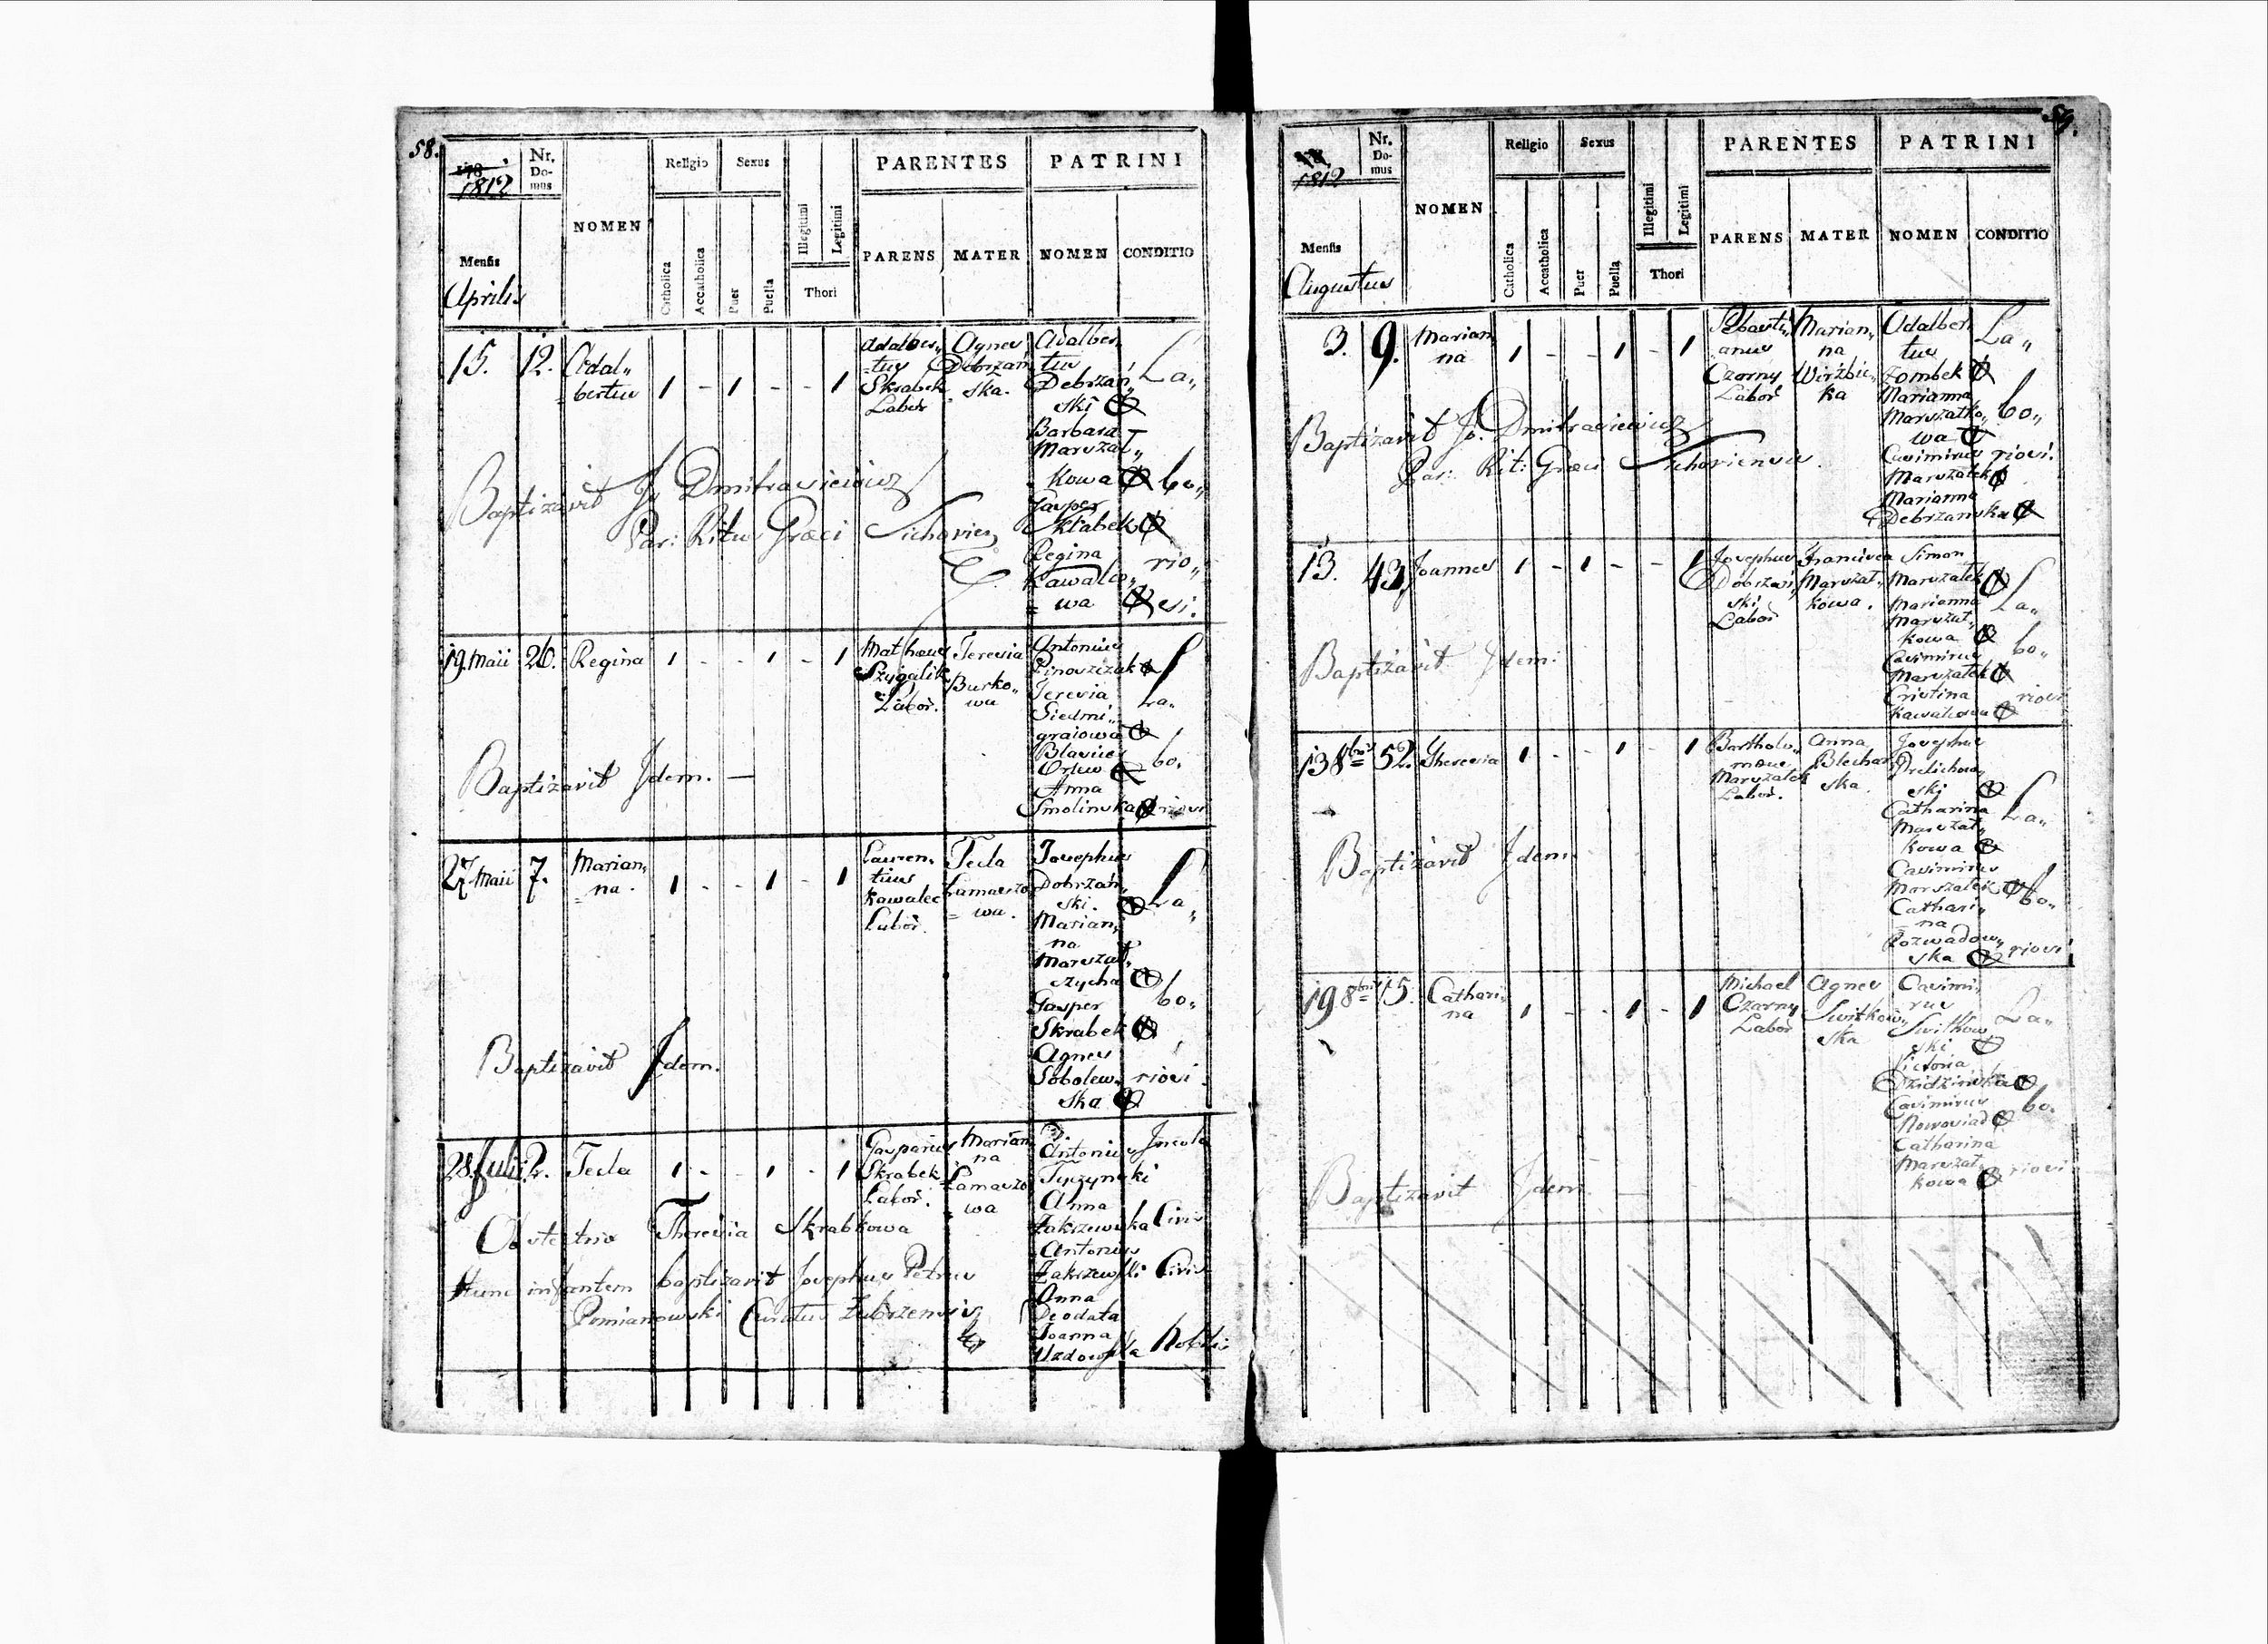 58.
178
1812
Nr. Do- mus
NOMEN
Religio
Sexus
Catholica
Accatholica
Puer
Puella
Illegitimi
Legitimi
Thori
PARENTES
PARENS
MATER
PATRINI
NOMEN
CONDITIO
Mensis
Aprilis
15. 12. Adal„
bertus
1 - 1 - - 1
Adalber„
tus
Skrabek
Labor
Agnes
Debrzań„
ska.
Adalber„
tus
Debrzań„
ski
Barbara
Marszał„
kowa
Gasper
Skrabek
Regina
Kawalco„
wa
La„
bo„
rio„
si.
Baptizavit J. Dmitrasiewicz
Par: Ritus Græci
19. Maii 26. Regina
1 - - 1 - 1
Mathæus
Szygalik
Labor.
Teresia
Burko„
wa
Antonius
Teresia
Siedmi„
graiowa
Blasius
Orlew
Anna
Smolinska
La„
bo„
riosi
Baptizavit Idem. —
27 Maii 7. Marian„
na.
1 - - 1 - 1
Lauren„
tius
Kawalec
Labor.
Tecla
Lamaszo
wa.
Josephus
Dobrzań„
ski.
Marian„
na
Marszał„
czycha
Gasper
Skrabek
Agnes
Sobolew„
ska
La„
bo„
riosi.
Baptizavit Idem.
28. Julii 2. Tecla
1 - - 1 - 1
Gasparus
Skrabek
Labor.
Marian„
na
Lamaszo
wa
Antonius
Tyczynski
Anna
Zakrzewska
Antonius
Zakrzewski
Anna
Deodata
Joanna
Uzdowska
Incola
Civis
Civis
Nobilis
Obstetrix Theresia Skrabkowa
Hunc infantem baptizavit Josephus Petrus
Pomianowski Curatus Zubrzensis
59.
1812
Nr. Do- mus
NOMEN
Religio
Sexus
Catholica
Accatholica
Puer
Puella
Illegitimi
Legitimi
Thori
PARENTES
PARENS
MATER
PATRINI
NOMEN
CONDITIO
Mensis
Augustus
3. 9. Marian„
na
1 - - 1 - 1
Sebasti„
anus
Czarny
Labor
Marian„
na
Wirzbic„
ka
Adalber„
tus
Zombek
Marianna
Marszałko„
wa
Casimirus
Marszałek
Marianna
Debrzanska
La„
bo„
riosi.
Baptizavit Jo. Dmitrasiewicz
Par: Rit: Græci
13. 43. Joannes
1 - 1 - - 1
Josephus
Dobrzań„
ski
Labor
Francisca
Marszał„
kowa.
Simon
Marszałek
Marianna
Marszał„
kowa
Casimirus
Marszałek
Cristina
Kawalcowa
La„
bo„
riosi
Baptizavit Idem:
13 8bris 52. Theresia
1 - - 1 - 1
Bartholo„
mæus
Marszałek
Labor.
Anna
Blechar„
ska.
Josephus
ski
Catharina
Marszał„
kowa
Casimirus
Marszałek
Cathari„
na
Rozwadow„
ska
La„
bo„
riosi
Baptizavit Idem.
19 8bris 15. Cathari„
na
1 - - 1 - 1
Michael
Czarny
Labor
Agnes
Switkow„
ska
Casimi„
rus
Switkow„
ski
Victoria
Dzidzinska
Casimirus
Nowosiad
Catharina
Marszał„
kowa
La„
bo„
riosi
Baptizavit Idem